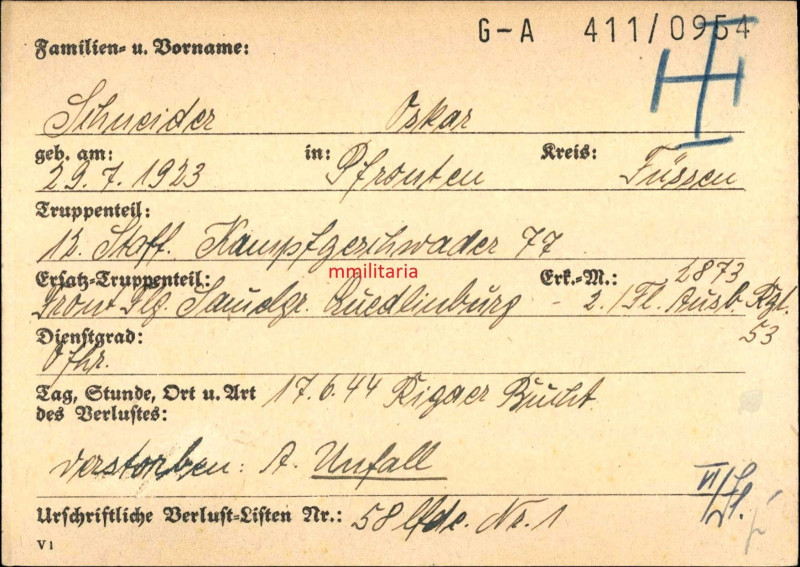 G-A 411/0954
Familien- u. Vorname:
Schneider Oskar
geb. am: in: Kreis:
29.7.1923 Pfronten Füssen
Truppenteil:
12. Staff. Kampfgeschwader 77
mmilitaria
Ersatz-Truppenteil: Erk.-M.: 2873
Front Flg. Samelgr. Quedlinburg - 2./Fl. Ausb. Rgt. 53
Dienstgrad:
Ofhr.
Tag, Stunde, Ort u. Art 17.6.44 Rigaer Bucht
des Verlustes:
verstorben: A. Unfall
Urschriftliche Verlust-Listen Nr.: 58 lfde. Nr. 1
V 1